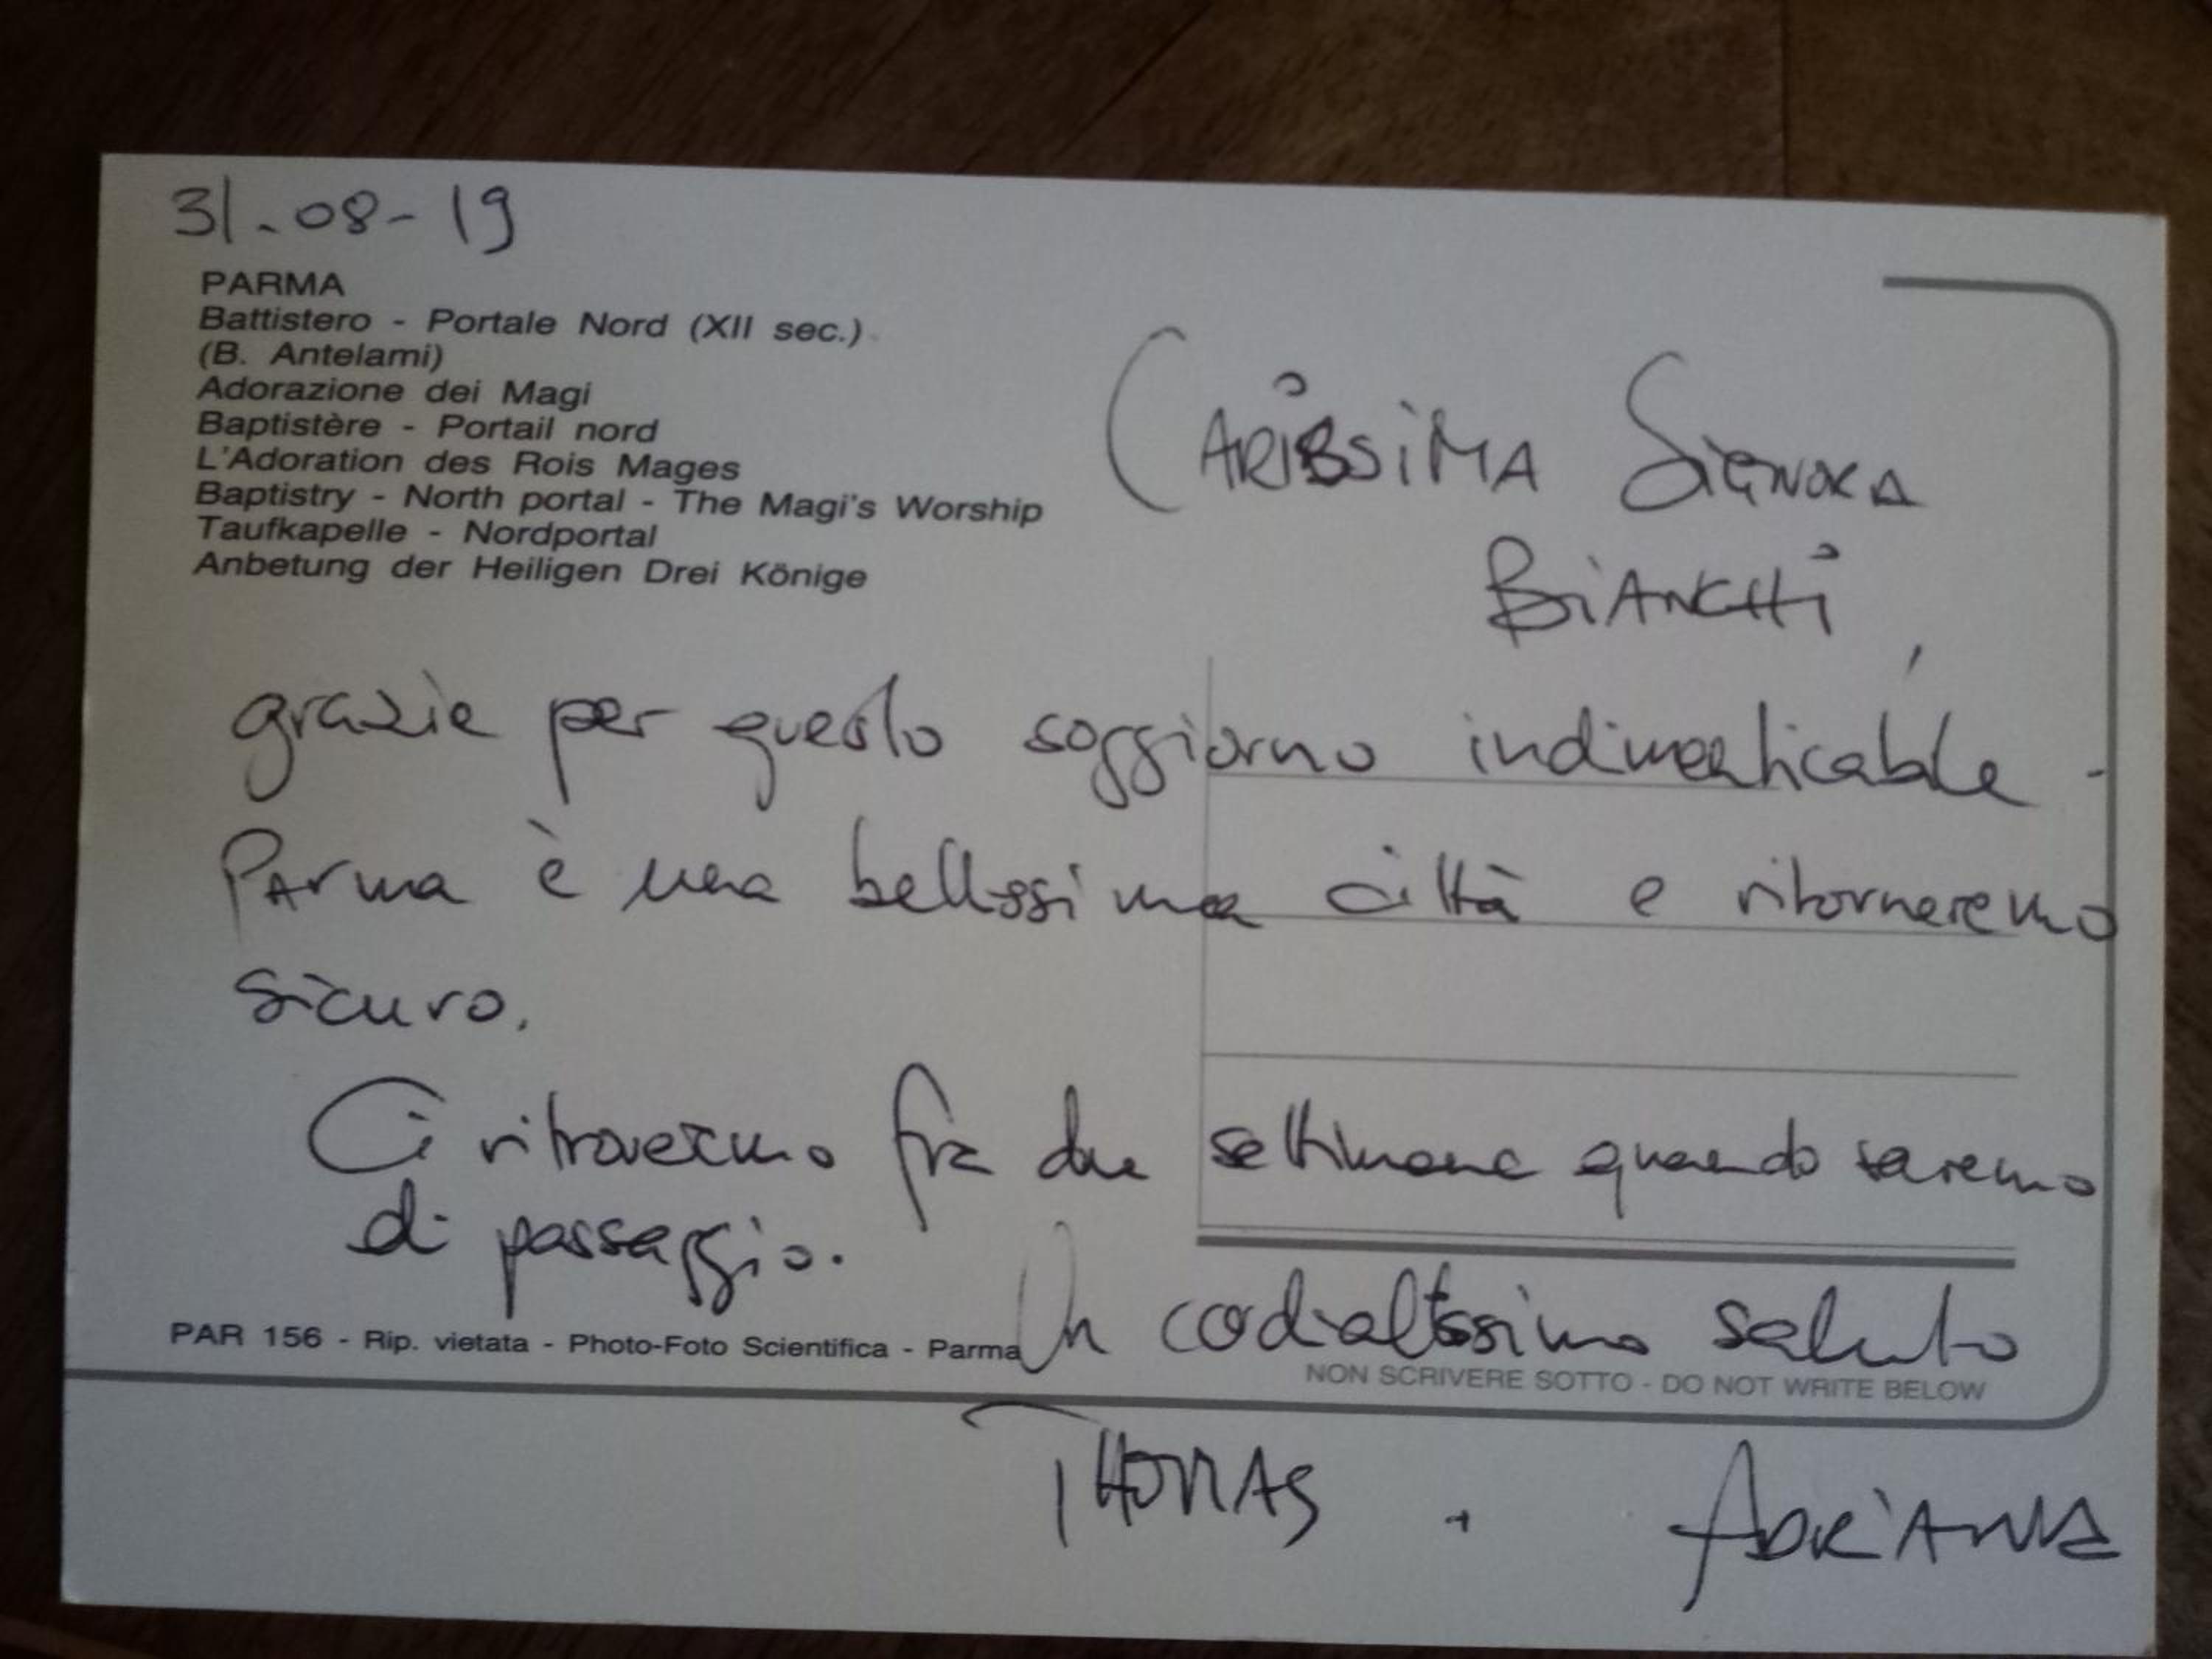 31-08-19
PARMA
Battistero - Portale Nord (XII sec.)
(B. Antelami)
Adorazione dei Magi
Baptistère - Portail nord
L'Adoration des Rois Mages
Baptistry - North portal - The Magi's Worship
Taufkapelle - Nordportal
Anbetung der Heiligen Drei Könige
CARISSIMA SIGNORA
BIANCHI,
grazie per questo soggiorno indimenticabile.
Parma è una bellissima città e ritorneremo
sicuro.
Ci ritroveremo fra due settimane quando saremo
di passaggio.
Un cordialissimo saluto
PAR 156 - Rip. vietata - Photo-Foto Scientifica - Parma
NON SCRIVERE SOTTO - DO NOT WRITE BELOW
THOMAS + ADRIANA